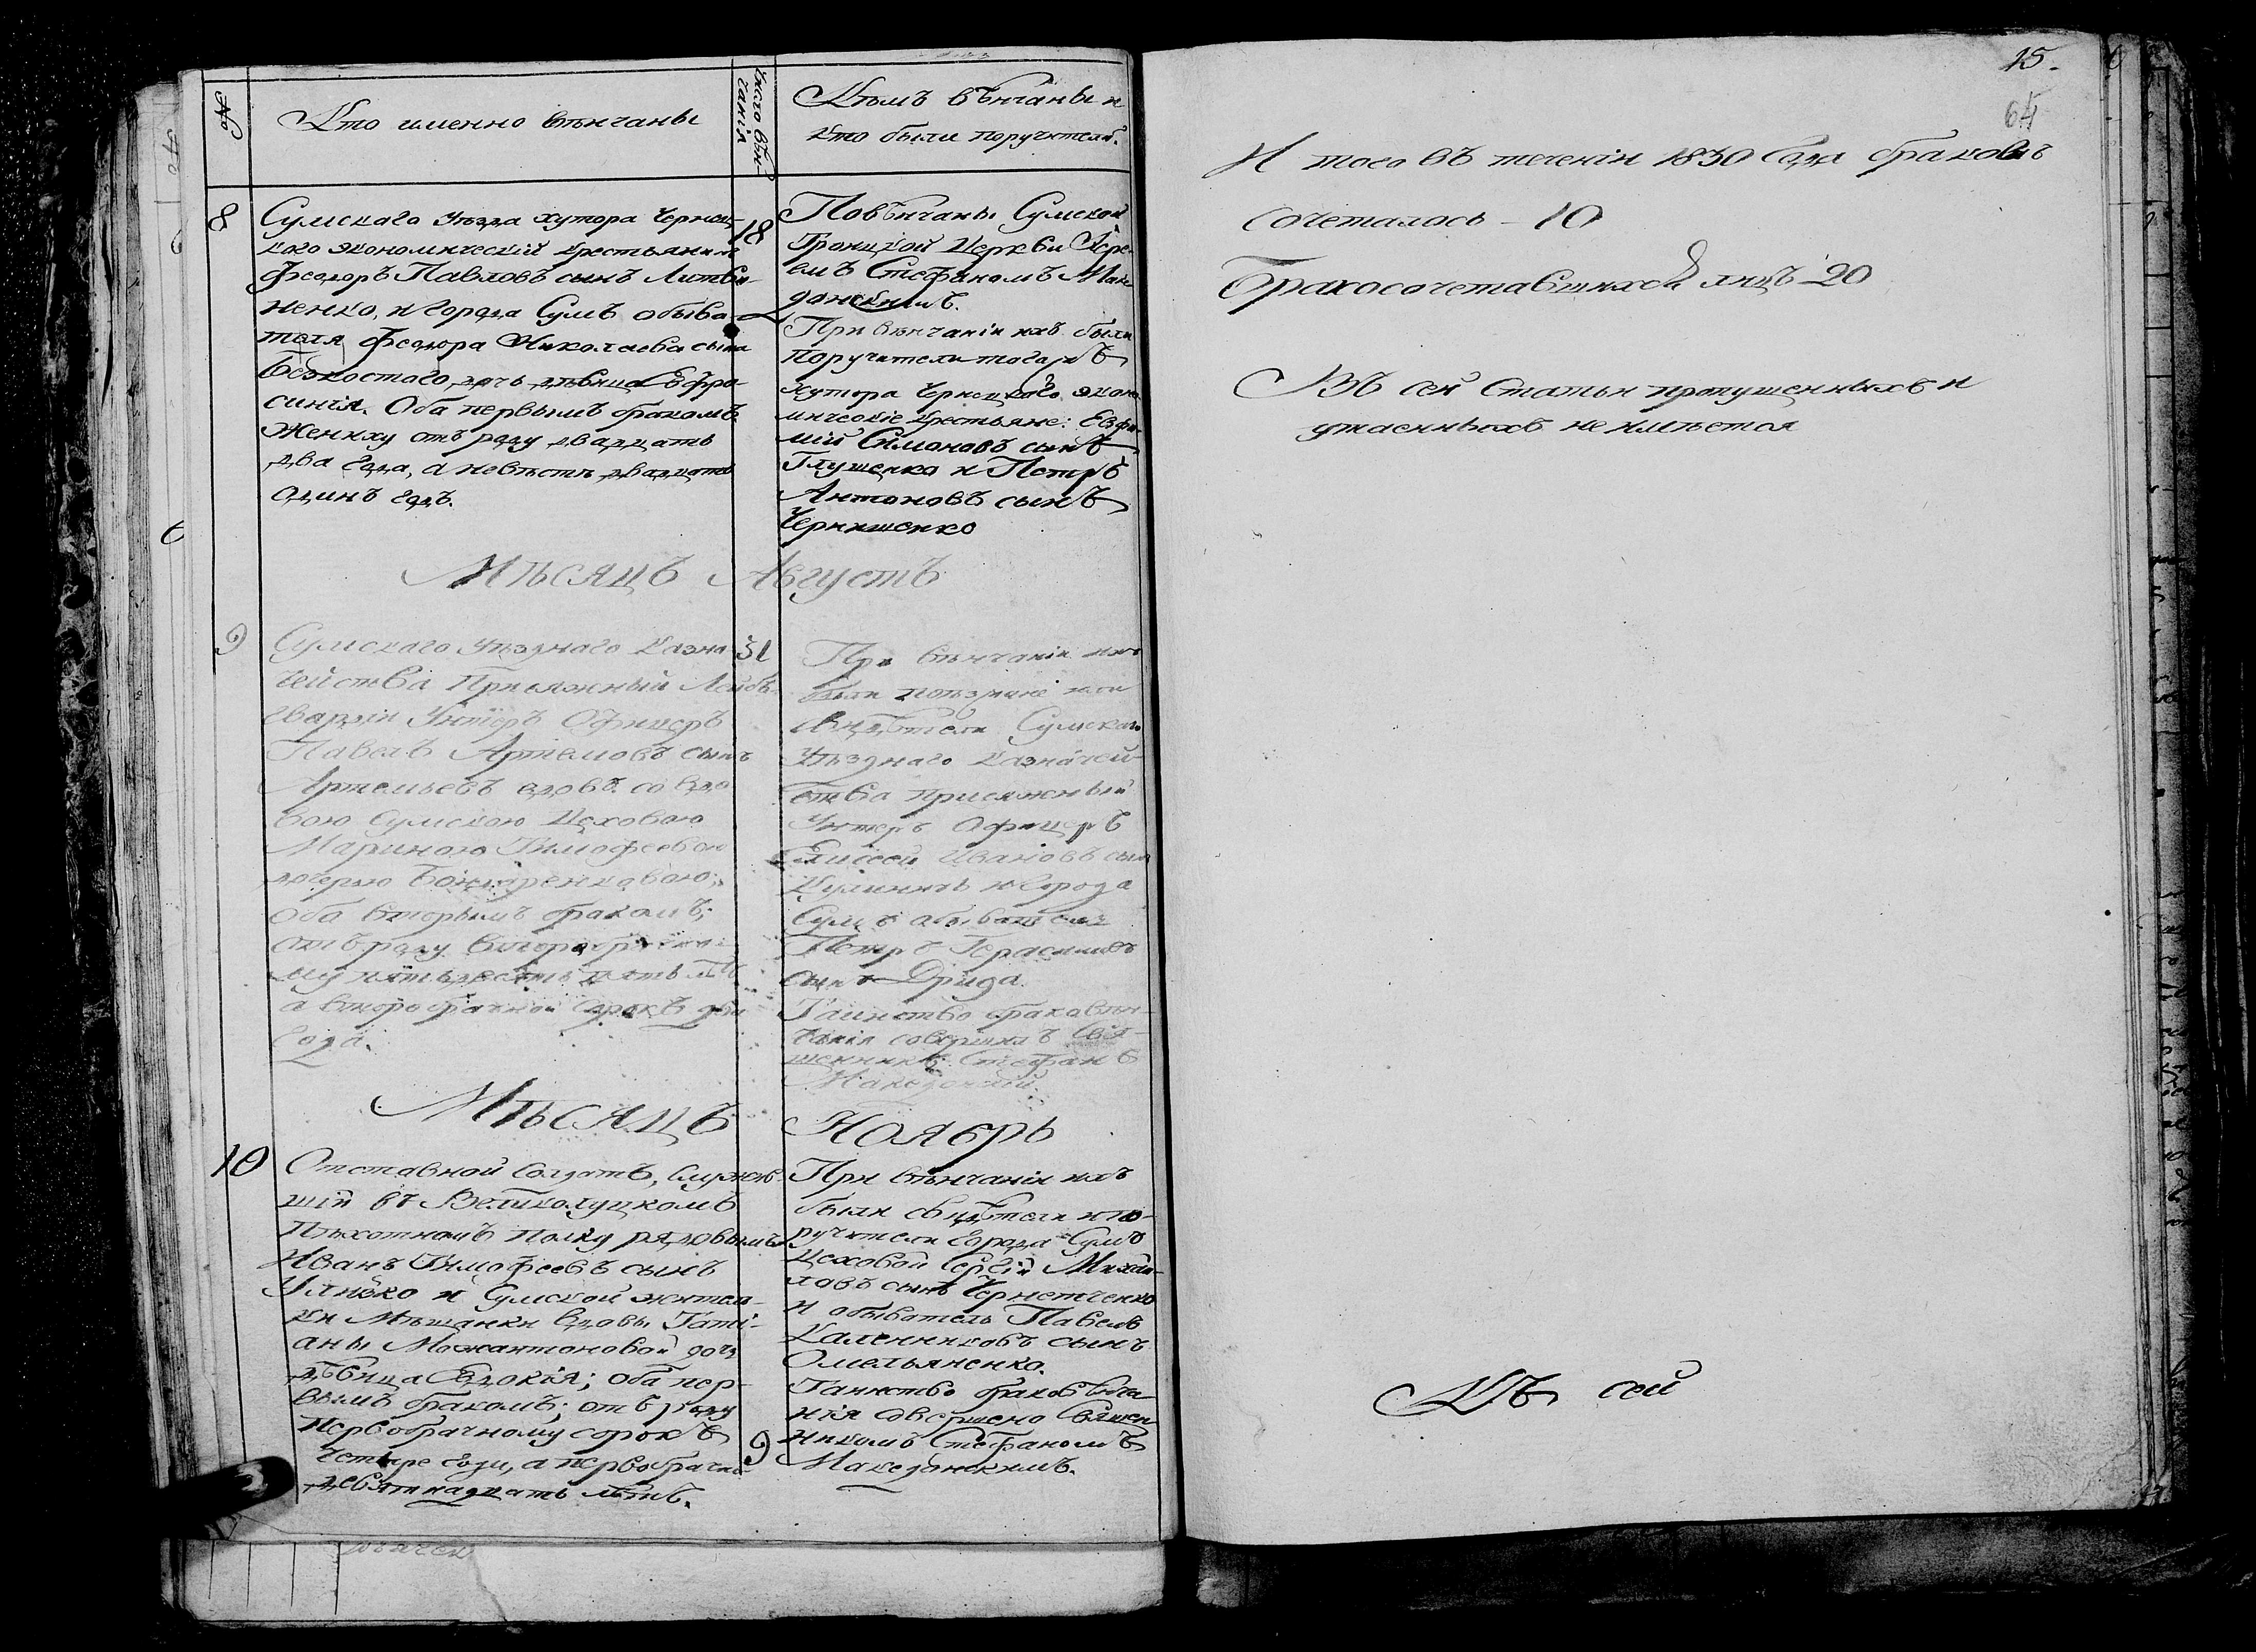 №
Кто именно вѣнчаны
Число вѣн-
чанія
Кѣмъ вѣнчаны и
кто были поручители.
8
Сумскаго уѣзда хутора Чернец-
кого экономическій крестьянинъ
Феодоръ Павловъ сынъ Литви-
ненко, и города Сумъ обыва-
теля Феодора Николаева сына
Безкостаго, дочь дѣвица Ефро-
синія. Оба первымъ бракомъ.
Жениху отъ роду двадцать
два года, а невѣстѣ двадцать
одинъ годъ.
18
Повѣнчаны Сумской
Троицкой Церкви Іере-
емъ Стефаномъ Маке
донскимъ.
При вѣнчаніи ихъ были
поручители тогожъ
хутора Чернецкого, эконо
мическіе крестьяне: Евфи-
мій Симоновъ сынъ
Глущенко и Петръ
Антоновъ сынъ
Чернишенко
Мѣсяцъ Августъ
9
Сумскаго Уѣзднаго Казна
чейства Присяжный Лейбъ-
гвардіи Унтеръ Офицеръ
Павелъ Артемовъ сынъ
Артемьевъ вдовъ. со вдо
вою Сумскою Цеховою
Мариною Тимофеевою
дочерью Бондаренковою;
Оба вторымъ бракомъ;
отъ роду второбрачно-
му пятьдесятъ пять лѣтъ
а второбрачной сорокъ два
года.
31
При вѣнчаніи ихъ
были
свидѣтели Сумскаго
Уѣзднаго Казначей-
ства присяжный
Унтеръ Офицеръ
Елисей Ивановъ сынъ
и города
Сумъ обыватель
Петръ Герасимовъ
сынъ Дрига.
Таинство браковѣн-
чанія совершилъ Свя-
щенникъ Стефанъ
Македонскій.
Мѣсяцъ Ноябрь
10
Отставной солдатъ, служив
шій въ Великолуцкомъ
Пѣхотномъ Полку рядовымъ
Иванъ Тимофеевъ сынъ
и Сумской житель-
ки Мѣщанки вдовы Таті-
аныМожантоновой дочь
дѣвица Евдокія; Оба пер-
вымъ бракомъ; отъ роду
Первобрачному сорокъ
четыре года, а первобрачной
девятнадцать лѣтъ.
9
При вѣнчаніи ихъ
были свидѣтели и по-
ручители города Сумъ
цеховой Сергій Михай-
ловъ сынъ
и обыватель Павелъ
Калениковъ сынъ
Омельяненко.
Таинство браковѣнча-
нія совершено Священ
никомъ Стефаномъ
Македонскимъ.
15.
64
И того въ теченіи 1830 Года браковъ
сочеталось - 10
Бракосочетавшихся лицъ - 20
Въ сей Статьи пропущенныхъ и
утаенныхъ не имѣется
Къ сей